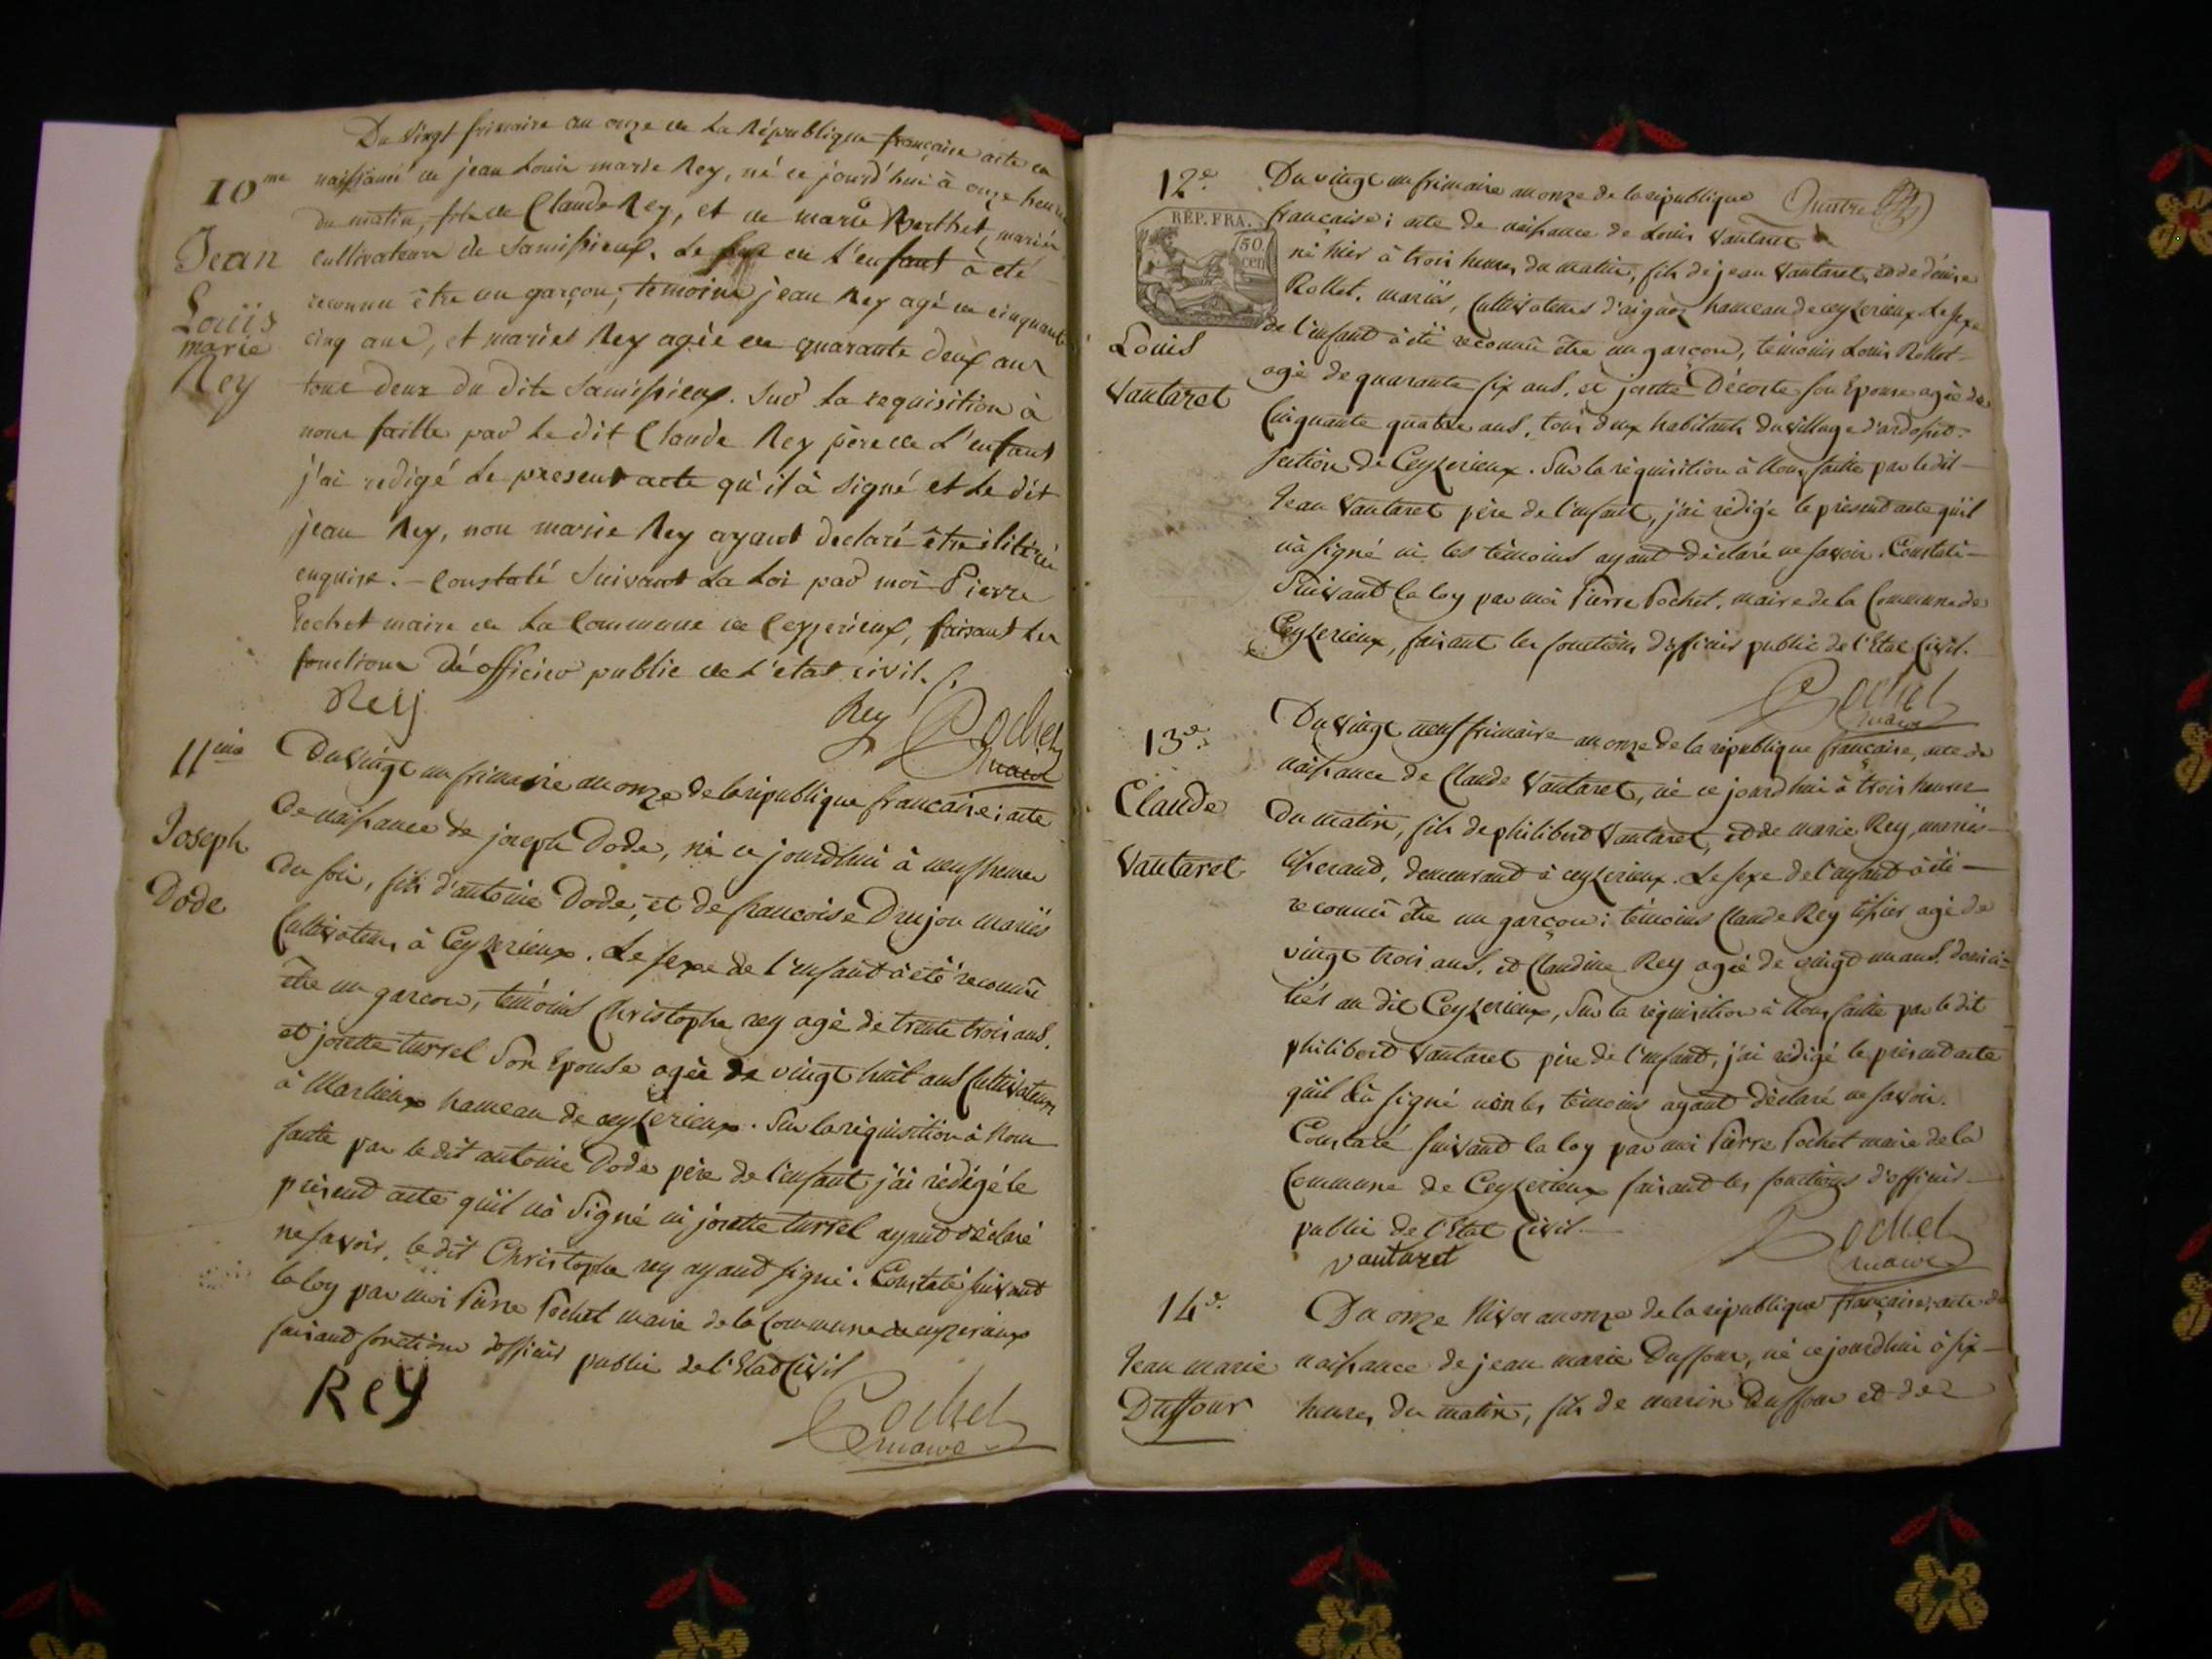 Du vingt frimaire an onze de La République française acte de
10me
naissance de jean Louis marie Rey, né ce jourd'hui à onze heures
du matin, fils de Claude Rey, et de marie Berthet, mariés
Jean
cultivateurs de Samissieux. Le sexe de L'enfant à eté
reconnu être un garçon; temoins jean Rey agé de cinquante
Louïs
marie
cinq ans, et marie Rey agée de quarante deux ans
Rey
tous deux du dit Samissieux. Sur La requisition à
nous faitte par Le dit Claude Rey père de L'enfant
j'ai redigé Le present acte qu'il à signé et Le dit
jean Rey, non marie Rey ayant declaré être
enquise. - Constaté Suivant La Loi par moi Pierre
Pochet maire de La Commune de Ceyzerieux, faisant Les
fonctions dé officier public de L'état civil.
Rey
Rey
Pochet
maire
11eme
Du vingt un frimaire an onze de la république francaise; acte
de naissance de joseph Dode, né ce jourdhui à neuf heures
Joseph
du soir, fils d'antoine Dode, et de francoise Drujon mariés
Dode
Cultivateurs à Ceyzerieux. Le sexe de l'enfant à été reconnu
être un garcon, témoins Christophe rey agé de trente trois ans,
et josette tussel Son Epouse agée de vingt huit ans Cultivateurs
à Marlieux hameau de ceyzerieux. Sur la réquisition à Nous
faitte par le dit antoine Dode père de l'enfant j'ai rédigé le
présent acte qu'il n'à Signé ni josette tussel ayant déclaré
ne savoir, le dit Christophe rey ayant signé. Constaté suivant
la loy par moi Pierre Pochet maire de la Commune de ceyzerieux
faisant fonctions d'officier public de l'Etat Civil
Rey
Pochet
maire
12e.
Du vingt un frimaire an onze de la république
Quatre
REP. FRA.
50 cen
française; acte de naissance de Louis Vautaret
né hier à trois heures du matin, fils de jean Vautaret, et de dénise
Rollet, mariés, Cultivateurs d'aignoz hameau de ceyzerieux. Le sexe
de l'enfant à été reconnu être un garçon, témoins Louis Rollet
Louis
agé de quarante six ans, et josette Décoste son Epouse agée de
Vautaret
Cinquante quatre ans, tous deux habitants du village d'ardosset
section de Ceyzerieux. Sur la réquisition à Nous faitte par le dit
Jean Vautaret père de l'enfant, j'ai rédigé le présent acte qu'il
n'à signé ni les témoins ayant déclaré ne savoir. Constaté
Suivant la loy par moi Pierre Pochet, maire de la Commune de
Ceyzerieux, faisant les fonctions d'officier public de l'Etat Civil.
Pochet
maire
13e.
Du vingt neuf frimaire an onze de la république française, acte de
naissance de Claude Vautaret, né ce jourdhui à trois heures
Claude
du matin, fils de philibert Vautaret, et de marie Rey, mariés
Vautaret
tisserand, demeurant à ceyzerieux. Le sexe de l'enfant à été
reconnu être un garçon: témoins Claude Rey tissier agé de
vingt trois ans, et Claudine Rey agée de vingt un ans, domici=
liés au dit Ceyzerieux, Sur la réquisition à Nous faitte par le dit
philibert Vautaret père de l'enfant, j'ai rédigé le présent acte
qu'il à signé non les témoins ayant déclaré ne savoir.
Constaté suivant la loy par moi Pierre Pochet maire de la
Commune de Ceyzerieux faisant les fonctions d'officier
public de l'Etat Civil.
vautaret
Pochet
maire
14e.
Du onze Nivose an onze de la république française, acte de
Jean marie
naissance de jean marie Duffour, né ce jourdhui à six
Duffour
heures du matin, fils de marin Duffour et de